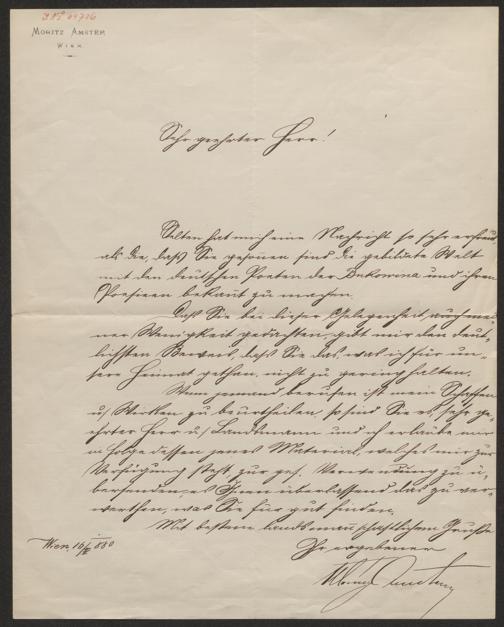 MORITZ AMSTER
WIEN
Sehr geehrter Herr!
Selten hat mich eine Nachricht so sehr erfreut,
als die, daß Sie gesonnen sind die gebildete Welt
mit den deutschen Poeten der Bukowina und ihren
Poesieen bekannt zu machen.
Daß Sie bei dieser Gelegenheit, auch mei-
ner Wenigkeit gedachten, gibt mir den deut-
lichsten Beweis, daß Sie das, was ich für un-
sere Heimat gethan, nicht zu gering halten.
Wenn jemand berufen ist mein Schaffen
u/ Wirken zu beurtheilen, so sind Sie es, sehr ge-
ehrter Herr u/ Landsmann und ich erlaube mir
in folge dessen jenes Material, welches mir zur
Verfügung steht, zur gef. Verwendung zu ü-
bersenden, es Ihnen überlassend das zu ver-
werthen, was Sie für gut finden.
Mit bestem landsmannschaftlichem Gruße
Ihr ergebener
Wien 16/ 880
Moritz Amster